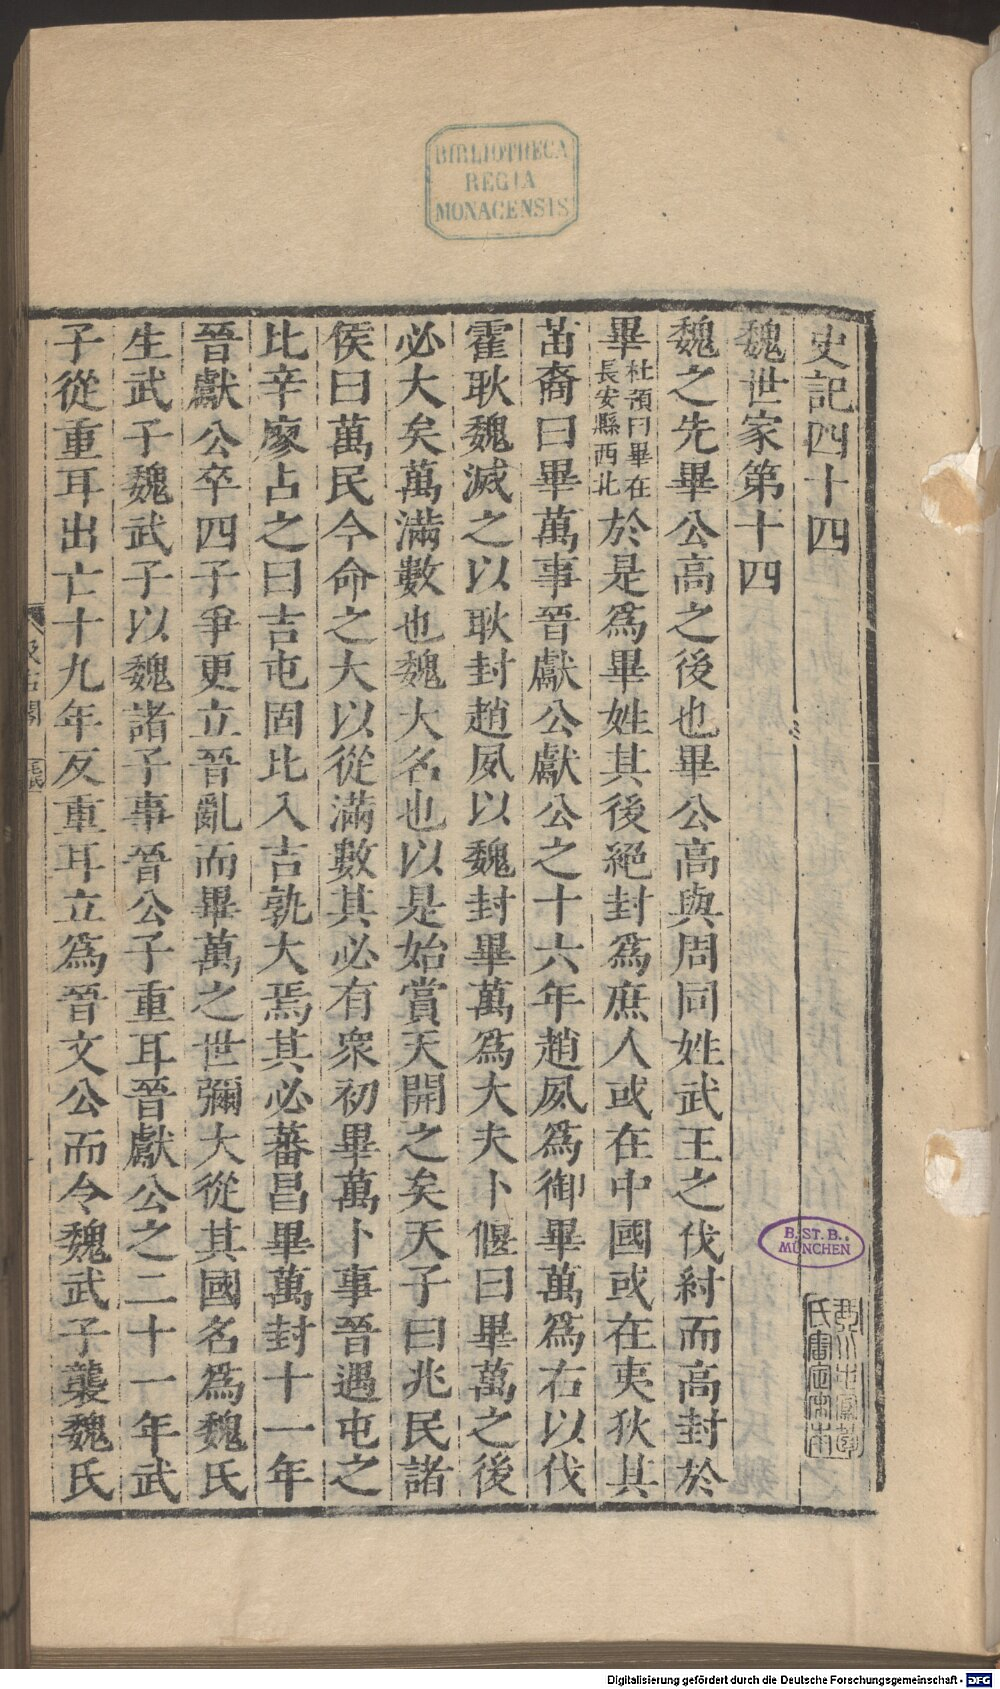 BIBLIOTHECA
REGIA
MONACENSIS
史記四十四
魏世家第十四
魏之先畢公高之後也畢公高與周同姓武王之伐紂而高封於
畢杜預曰畢在長安縣西北於是爲畢姓其後絕封爲庶人或在中國或在夷狄其
苗裔曰畢萬事晉獻公獻公之十六年趙夙爲御畢萬爲右以伐
霍耿魏滅之以耿封趙夙以魏封畢萬爲大夫卜偃曰畢萬之後
必大矣萬滿數也魏大名也以是始賞天開之矣天子曰兆民諸
侯曰萬民今命之大以從滿數其必有衆初畢萬卜事晉遇屯之
比辛廖占之曰吉屯固比入吉孰大焉其必蕃昌畢萬封十一年
晉獻公卒四子爭更立晉亂而畢萬之世彌大從其國名爲魏氏
生武子魏武子以魏諸子事晉公子重耳晉獻公之二十一年武
子從重耳出亡十九年反重耳立爲晉文公而令魏武子襲魏氏
B. ST. B.
MÜNCHEN
Digitalisierung gefördert durch die Deutsche Forschungsgemeinschaft - DFG